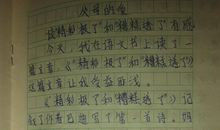 父母的爱
读"精彩极了"和"糟糕透了"有感
今天，我在语文书上读了一
篇文章，《"精彩极了"和"糟糕透了"》
这篇文章让我受益匪浅。
《"精彩极了"和"糟糕透了"》记
叙了作者巴德写了第一首诗，妈